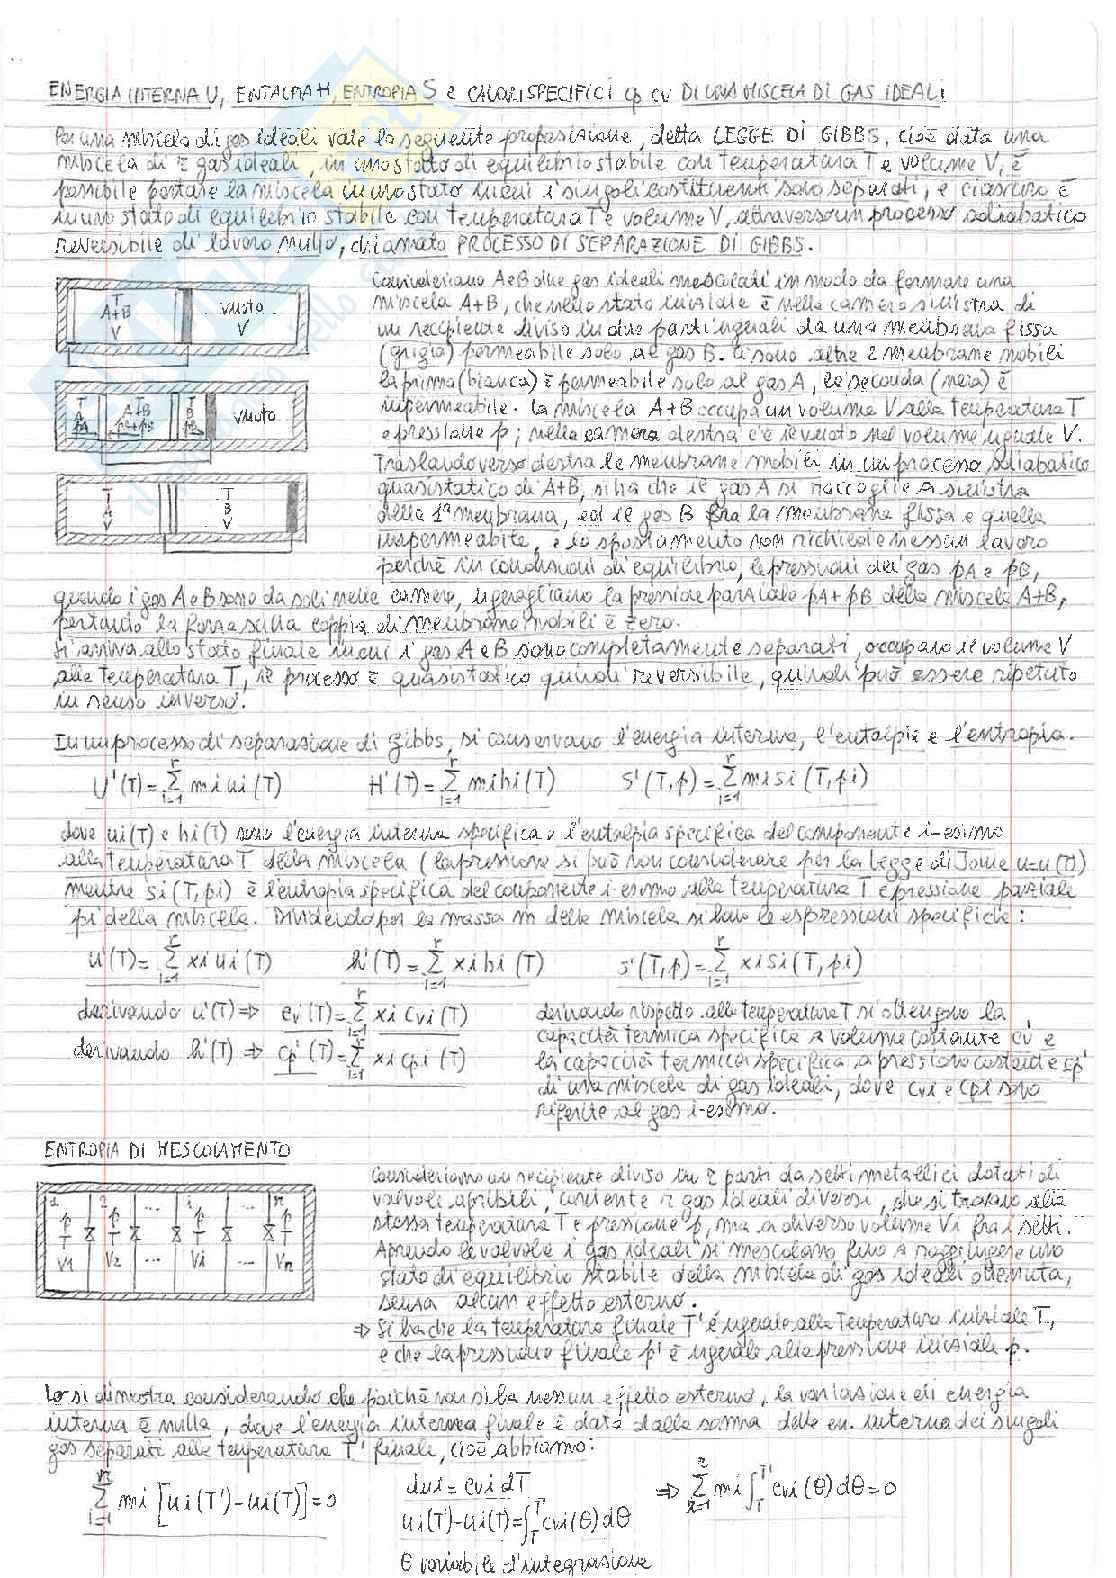 ENERGIA INTERNA U, ENTALPIA H, ENTROPIA S e CALORI SPECIFICI cp cv DI UNA MISCELA DI GAS IDEALI
Per una miscela di gas ideali vale la seguente proposizione, detta LEGGE DI GIBBS, cioè data una
miscela di r gas ideali, in uno stato di equilibrio stabile con temperatura T e volume V, è
possibile portare la miscela in uno stato in cui i singoli costituenti sono separati, e ciascuno è
in uno stato di equilibrio stabile con temperatura T e volume V, attraverso un processo adiabatico
reversibile di lavoro nullo, chiamato PROCESSO DI SEPARAZIONE DI GIBBS.
T
A+B
V
vuoto
V
T
A
pA
A+B
pA+pB
T
B
pB
vuoto
T
A
V
T
B
V
Consideriamo A e B due gas ideali mescolati in modo da formare una
miscela A+B, che nello stato iniziale è nella camera sinistra di
un recipiente diviso in due parti uguali da una membrana fissa
(grigia) permeabile solo al gas B. Ci sono altre 2 membrane mobili
la prima (bianca) è permeabile solo al gas A, la seconda (nera) è
impermeabile. La miscela A+B occupa un volume V alla temperatura T
e pressione p; nella camera destra c'è il vuoto nel volume uguale V.
Traslando verso destra le membrane mobili in un processo adiabatico
quasistatico di A+B, si ha che il gas A si raccoglie a sinistra
della 1ª membrana, ed il gas B fra la membrana fissa e quella
impermeabile, e lo spostamento non richiede nessun lavoro
perchè in condizioni di equilibrio, le pressioni dei gas pA e pB,
quando i gas A e B sono da soli nelle camere, uguagliano la pressione parziale pA+pB della miscela A+B,
pertanto la forza sulla coppia di membrane mobili è zero.
Si arriva allo stato finale in cui i gas A e B sono completamente separati, occupano il volume V
alla temperatura T, il processo è quasistatico quindi reversibile, quindi può essere ripetuto
in senso inverso.
In un processo di separazione di Gibbs, si conservano l'energia interna, l'entalpia e l'entropia.
U'(T)=∑ᵣᵢ₌₁ mi ui(T) H'(T)=∑ᵣᵢ₌₁ mi hi(T) S'(T,p)=∑ᵣᵢ₌₁ mi si(T,pi)
dove ui(T) e hi(T) sono l'energia interna specifica e l'entalpia specifica del componente i-esimo
alla temperatura T della miscela (la pressione si può non considerare per la legge di Joule u=u(T))
mentre si(T,pi) è l'entropia specifica del componente i-esimo alla temperatura T e pressione parziale
pi della miscela. Dividendo per la massa m della miscela si hanno le espressioni specifiche:
u'(T)=∑ᵣᵢ₌₁ xi ui(T) h'(T)=∑ᵣᵢ₌₁ xi hi(T) s'(T,p)=∑ᵣᵢ₌₁ xi si(T,pi)
derivando u'(T) ⇒ cv'(T)=∑ᵣᵢ₌₁ xi cvi(T)
derivando h'(T) ⇒ cp'(T)=∑ᵣᵢ₌₁ xi cpi(T)
derivando rispetto alla temperatura T si ottengono la
capacità termica specifica a volume costante cv' e
la capacità termica specifica a pressione costante cp'
di una miscela di gas ideali, dove cvi e cpi sono
riferite al gas i-esimo.
ENTROPIA DI MESCOLAMENTO
1 2 ... i ... n
p p p p
T T T T
V1 V2 ... Vi ... Vn
Consideriamo un recipiente diviso in r parti da setti metallici dotati di
valvole apribili, contenente r gas ideali diversi, che si trovano alla
stessa temperatura T e pressione p, ma a diverso volume Vi fra i setti.
Aprendo le valvole i gas ideali si mescolano fino a raggiungere uno
stato di equilibrio stabile della miscela di gas ideali ottenuta,
senza alcun effetto esterno.
⇒ Si ha che la temperatura finale T' è uguale alla temperatura iniziale T,
e che la pressione finale p' è uguale alla pressione iniziale p.
Lo si dimostra considerando che poichè non si ha nessun effetto esterno, la variazione di energia
interna è nulla, dove l'energia interna finale è data dalla somma delle en. interna dei singoli
gas separati alla temperatura T' finale, cioè abbiamo:
∑ⁿᵢ₌₁ mi [ui(T')-ui(T)]=0 dui = cvi dT ⇒ ∑ʳᵢ₌₁ mi ∫ᵀ'ᴛ cvi(θ)dθ=0
ui(T')-ui(T)=∫ᵀ'ᴛ cvi(θ)dθ
θ variabile d'integrazione